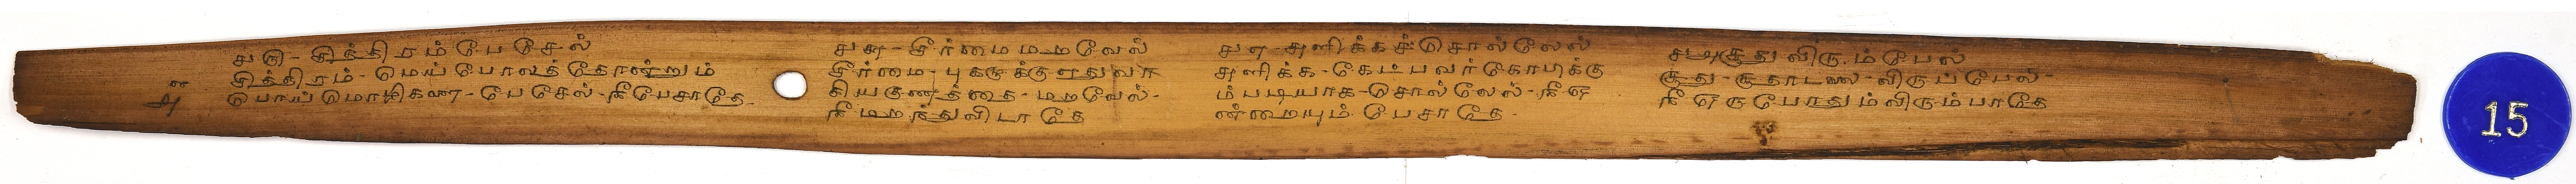 ௪௫ - சித்திரம் பேசேல்
சித்திரம் - மெய் போலத் தோன்றும்
பொய் மொழிகளை - பேசேல் - நீ பேசாதே
௪௬ - சீர்மை மறவேல்
சீர்மை - புகழுக்கு ஏதுவா
கிய குணத்தை - மறவேல் -
நீ மறந்துவிடாதே
௪௭ - சுளிக்கச் சொல்லேல்
சுளிக்க - கேட்பவர் கோபிக்கு
ம்படியாக - சொல்லேல் - நீ ஏ
ன்றையும் பேசாதே -
௪௮ சூது விரும்பேல்
சூது - சூதாடலை - விரும்பேல் -
நீ ஒருபோதும் விரும்பாதே
15